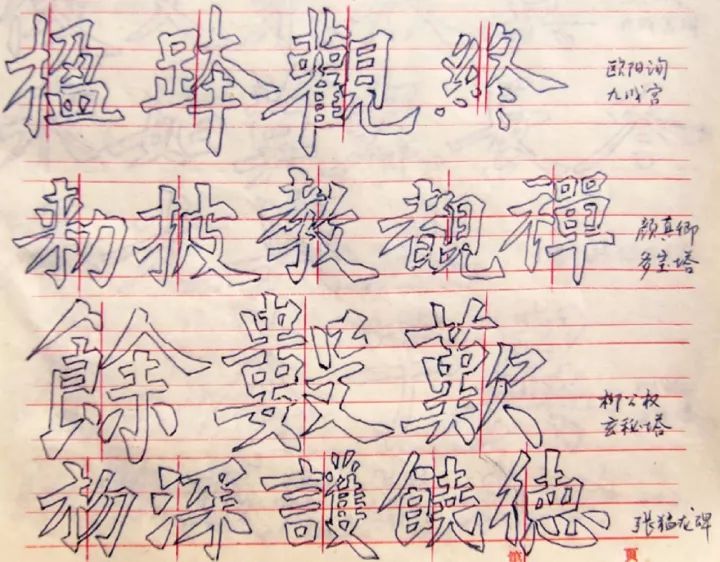 楹 觀 終
欧阳询
九成宫
勑 披 教 覩 禪
颜真卿
多宝塔
餘 數 歎
柳公权
玄秘塔
深 護 饒 德
张猛龙碑
第 頁